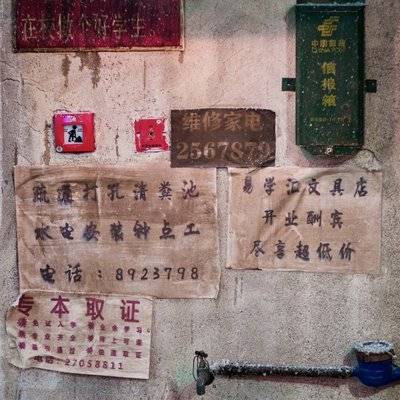 在校做个好学生
中国邮政
CHINA POST
信报箱
维修家电
2567879
疏通打孔清粪池
水电安装钟点工
电话：8923798
易学汇文具店
开业酬宾
尽享超低价
专本取证
免试入学
电话：27058811